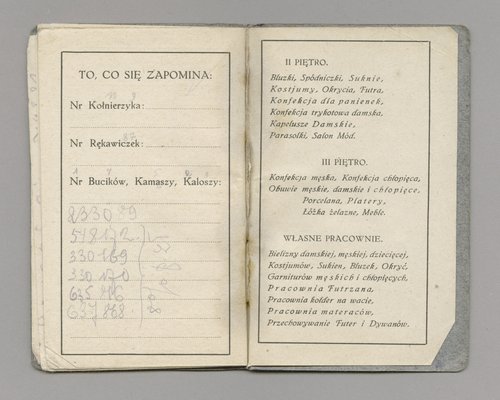 TO, CO SIĘ ZAPOMINA:
Nr Kołnierzyka:
Nr Rękawiczek:
Nr Bucików, Kamaszy, Kaloszy:
233089
518172
330169
330170
635 816
637868
II PIĘTRO.
Bluzki, Spódniczki, Suknie,
Kostjumy, Okrycia, Futra,
Konfekcja dla panienek,
Konfekcja trykotowa damska,
Kapelusze Damskie,
Parasolki, Salon Mód.
III PIĘTRO.
Konfekcja męska, Konfekcja chłopięca,
Obuwie męskie, damskie i chłopięce,
Porcelana, Platery,
Łóżka żelazne, Meble.
WŁASNE PRACOWNIE.
Bielizny damskiej, męskiej, dziecięcej,
Kostjumów, Sukien, Bluzek, Okryć,
Garniturów męskich i chłopięcych,
Pracownia Futrzana,
Pracownia kołder na wacie,
Pracownia materaców,
Przechowywanie Futer i Dywanów.